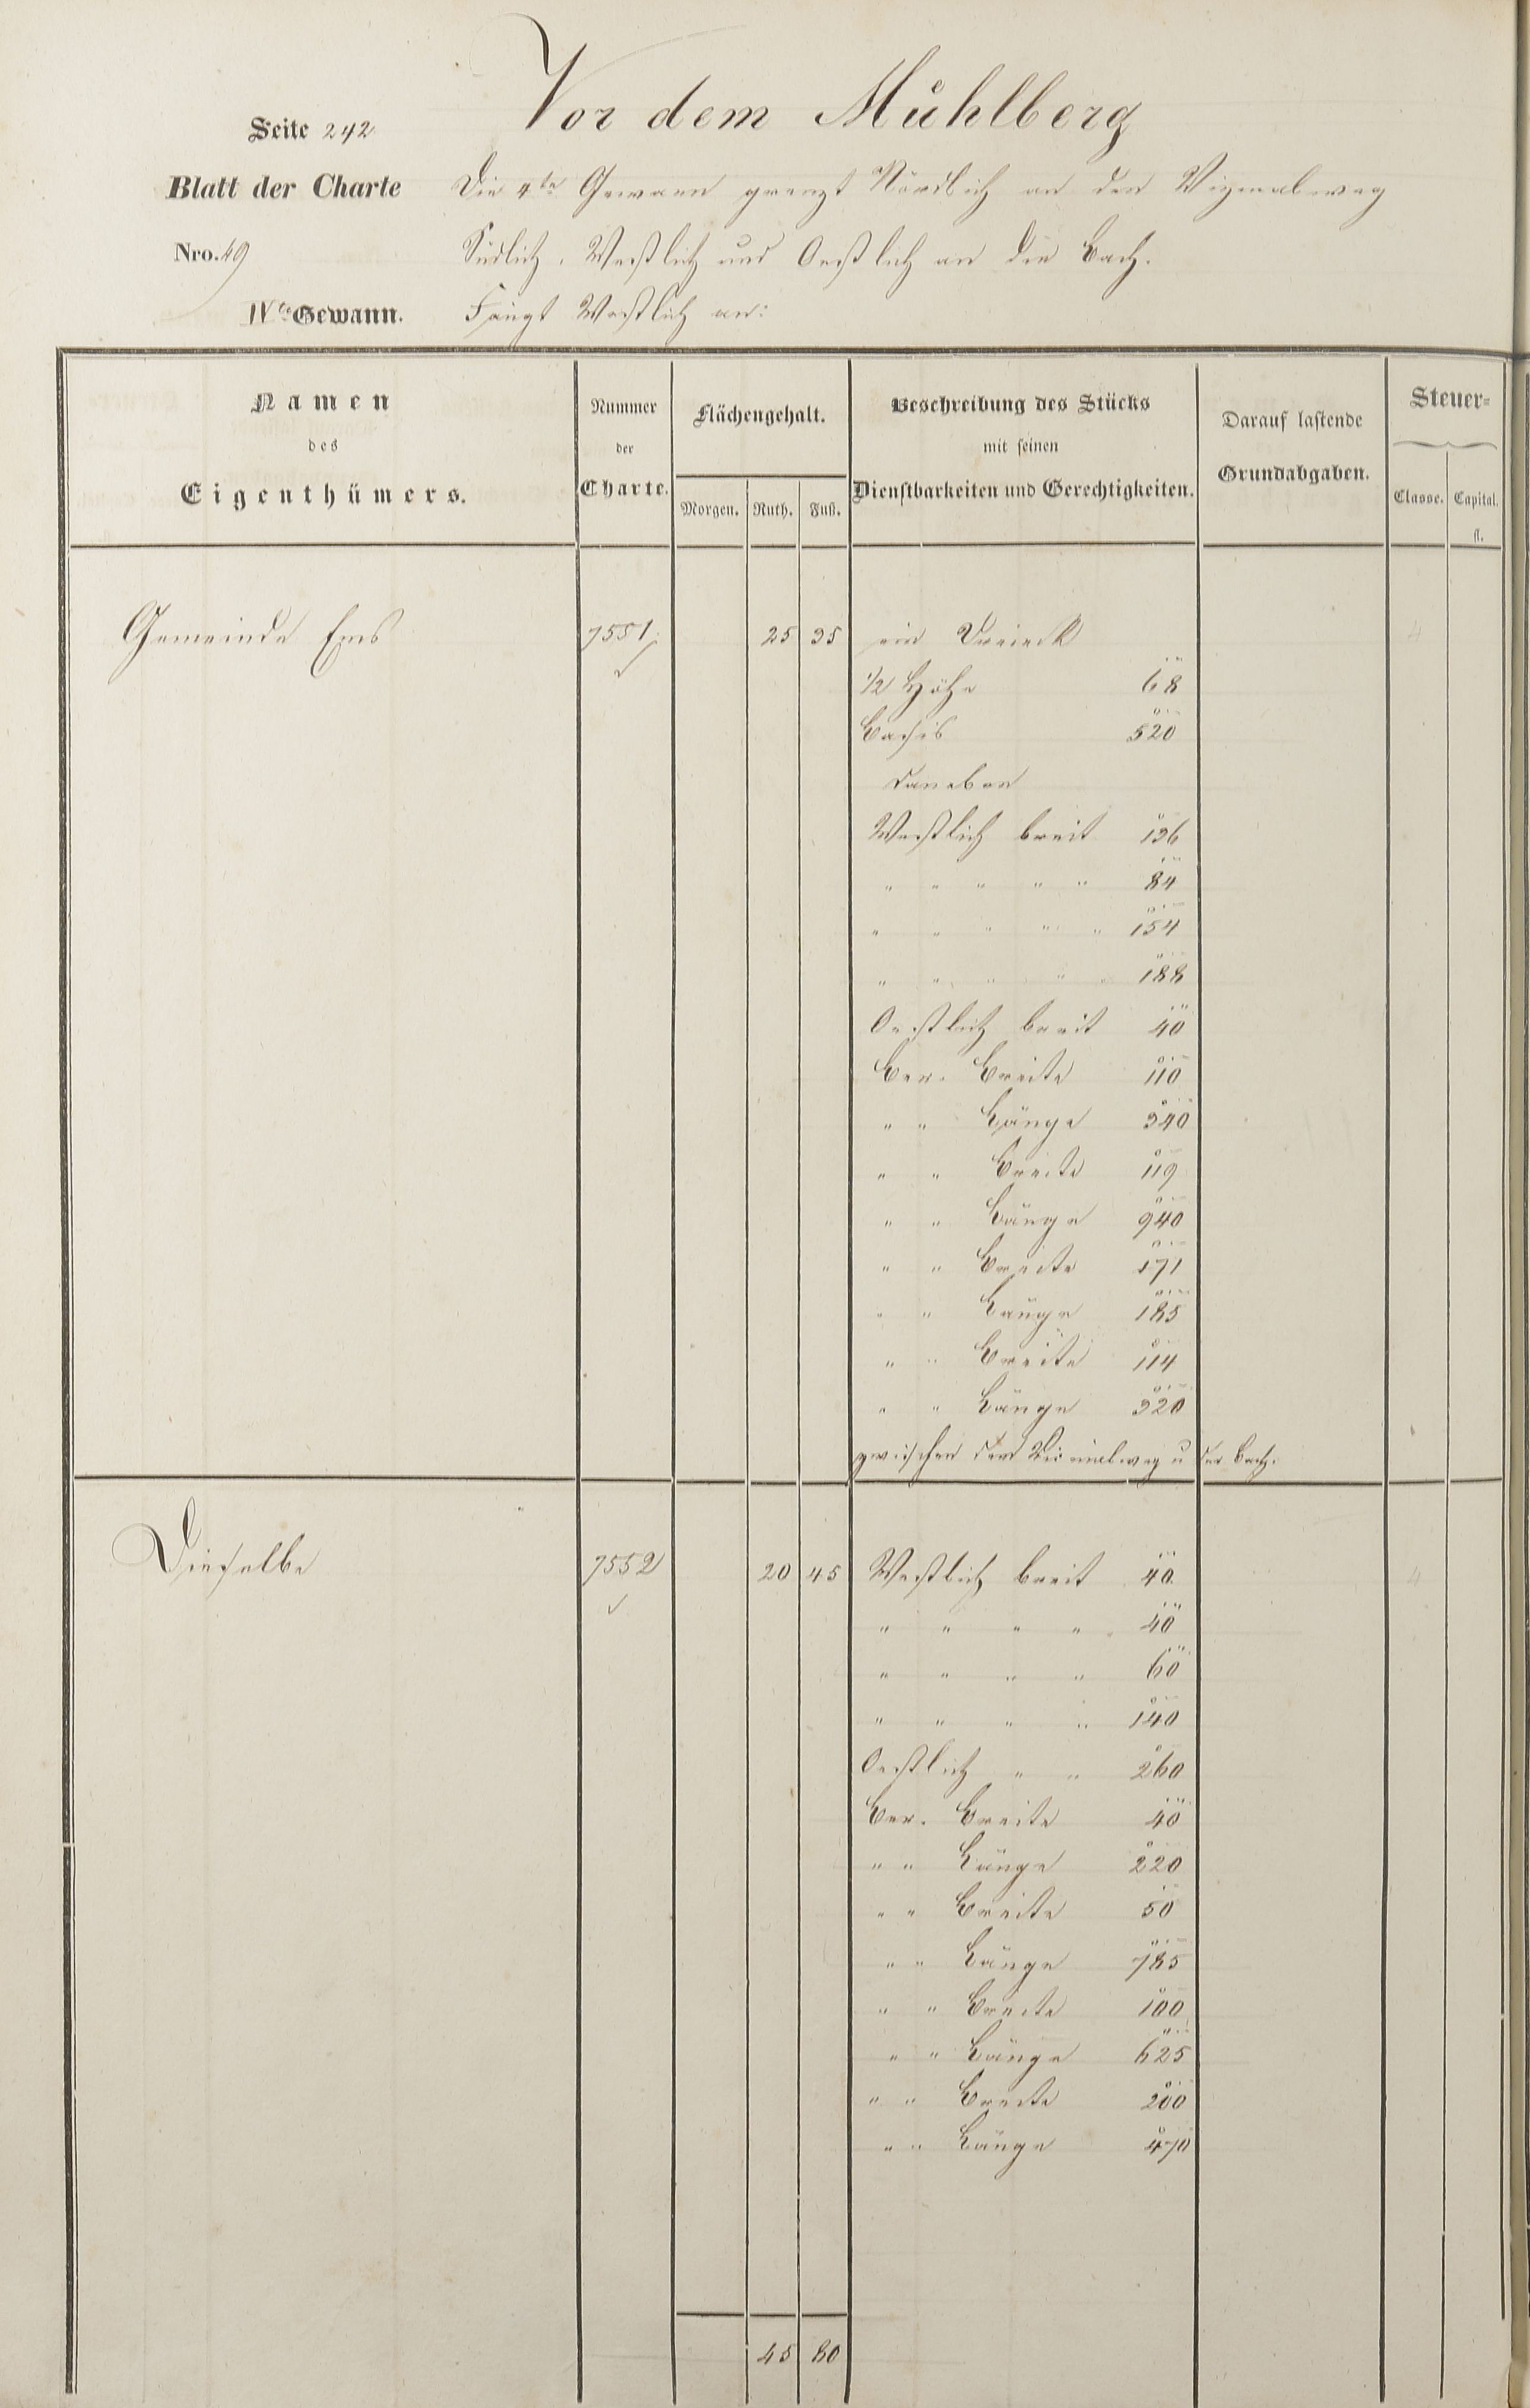 Vor dem Mühlberg
Seite 242
Blatt der Charte Die 4te Gewann grenzt Nördlich an den Vizinalweg
Nro. 49 Südlich, Westlich und Oestlich an die Bach.
IVte Gewann. Fängt Westlich an:
Namen des Eigenthümers.
Nummer der Charte.
Flächengehalt.
Morgen. Ruth. Fuß.
Beschreibung des Stücks
mit seinen
Dienstbarkeiten und Gerechtigkeiten.
Darauf lastende
Grundabgaben.
Steuer=
Classe. Capital.
fl.
Gemeinde Ems 7551 25 35 ein Dreieck 4
1/2 Höhe 68
Basis 520
daneben
Westlich breit 136
" " " " " 84
" " " " " 154
" " " " " 188
Oestlich breit 40
Ber. Breite 110
" " Länge 340
" " Breite 119
" " Länge 940
" " Breite 171
" " Länge 185
" " Breite 114
" " Länge 320
zwischen dem Vicinalweg u der Bach.
Dieselbe 7552 20 45 Westlich breit 40 4
" " " " 40
" " " " 60
" " " " 140
Oestlich " " 260
Ber. Breite 40
" " Länge 220
" " Breite 50
" " Länge 785
" " Breite 100
" " Länge 625
" " Breite 200
" " Länge 470
45 80